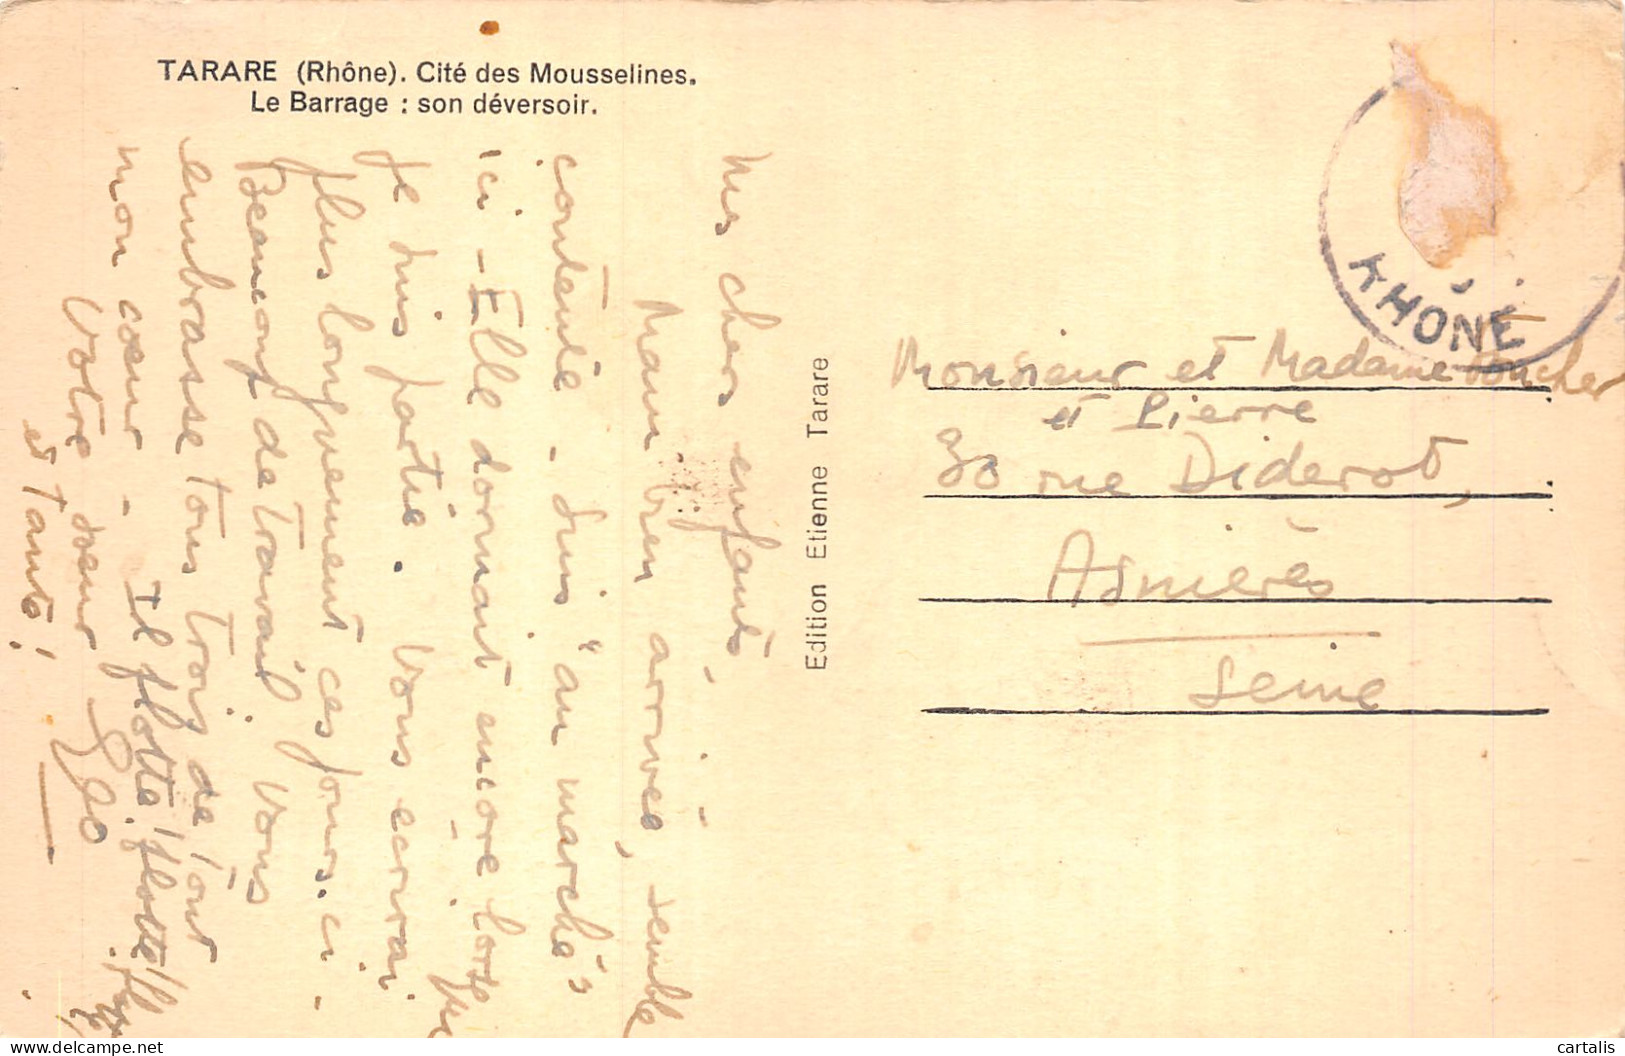 TARARE (Rhône). Cité des Mousselines.
Le Barrage : son déversoir.
Mes chers enfants,
Mam bien arrivée, semble
contente - suis "au marché"
ici - Elle dormait encore lorsque
je suis partie. Vous écrirai
plus longuement ces jours-ci -
Beaucoup de travail. Vous
embrasse tous trois de tout
mon cœur - Il flotte, flotte!
Votre sœur
et Tante!
Edition Etienne Tarare
RHÔNE
Monsieur et Madame
et Pierre
30 rue Diderot,
Asnières
Seine
cartalis